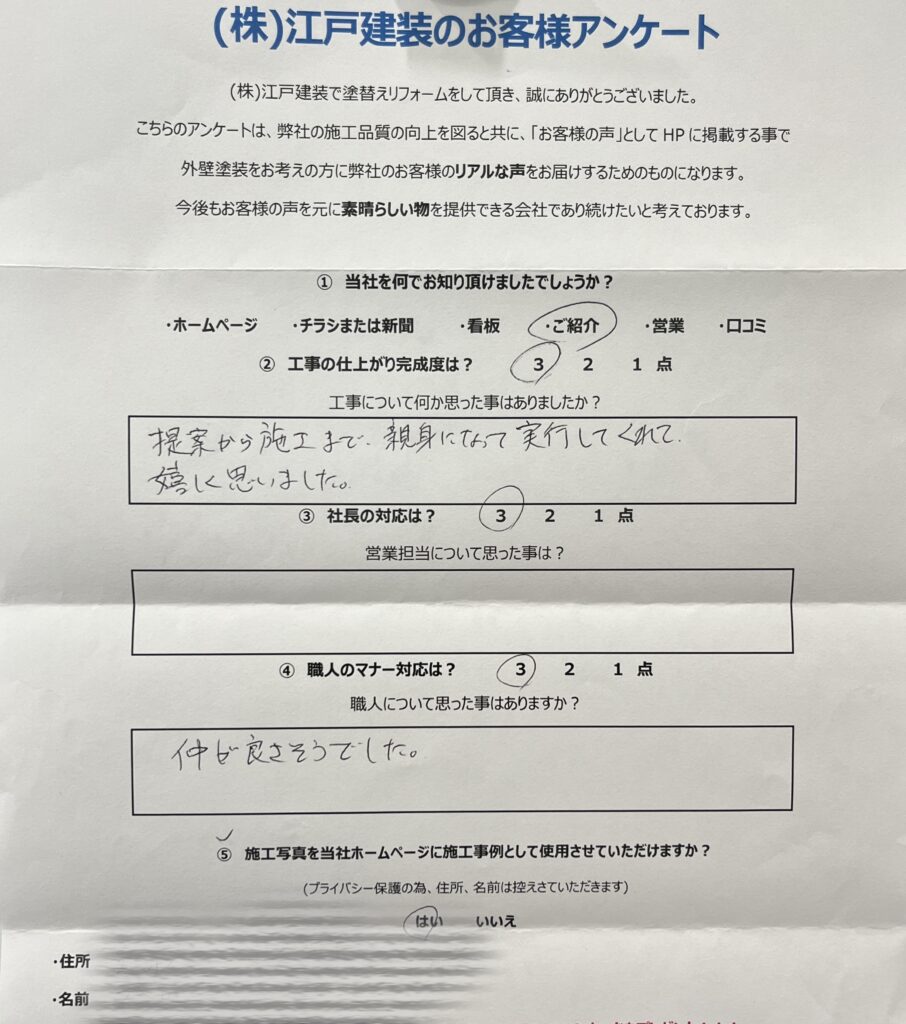 (株)江戸建装のお客様アンケート
(株)江戸建装で塗替えリフォームをして頂き、誠にありがとうございました。
こちらのアンケートは、弊社の施工品質の向上を図ると共に、「お客様の声」として HP に掲載する事で
外壁塗装をお考えの方に弊社のお客様のリアルな声をお届けするためのものになります。
今後もお客様の声を元に素晴らしい物を提供できる会社であり続けたいと考えております。
① 当社を何でお知り頂けましたでしょうか？
・ホームページ ・チラシまたは新聞 ・看板 ・ご紹介 ・営業 ・口コミ
② 工事の仕上がり完成度は？ 3 2 1 点
工事について何か思った事はありましたか？
提案から施工まで、親身になって実行してくれて、
嬉しく思いました。
③ 社長の対応は？ 3 2 1 点
営業担当について思った事は？
④ 職人のマナー対応は？ 3 2 1 点
職人について思った事はありますか？
仲が良さそうでした。
⑤ 施工写真を当社ホームページに施工事例として使用させていただけますか？
(プライバシー保護の為、住所、名前は控えさていただきます)
はい いいえ
・住所
・名前